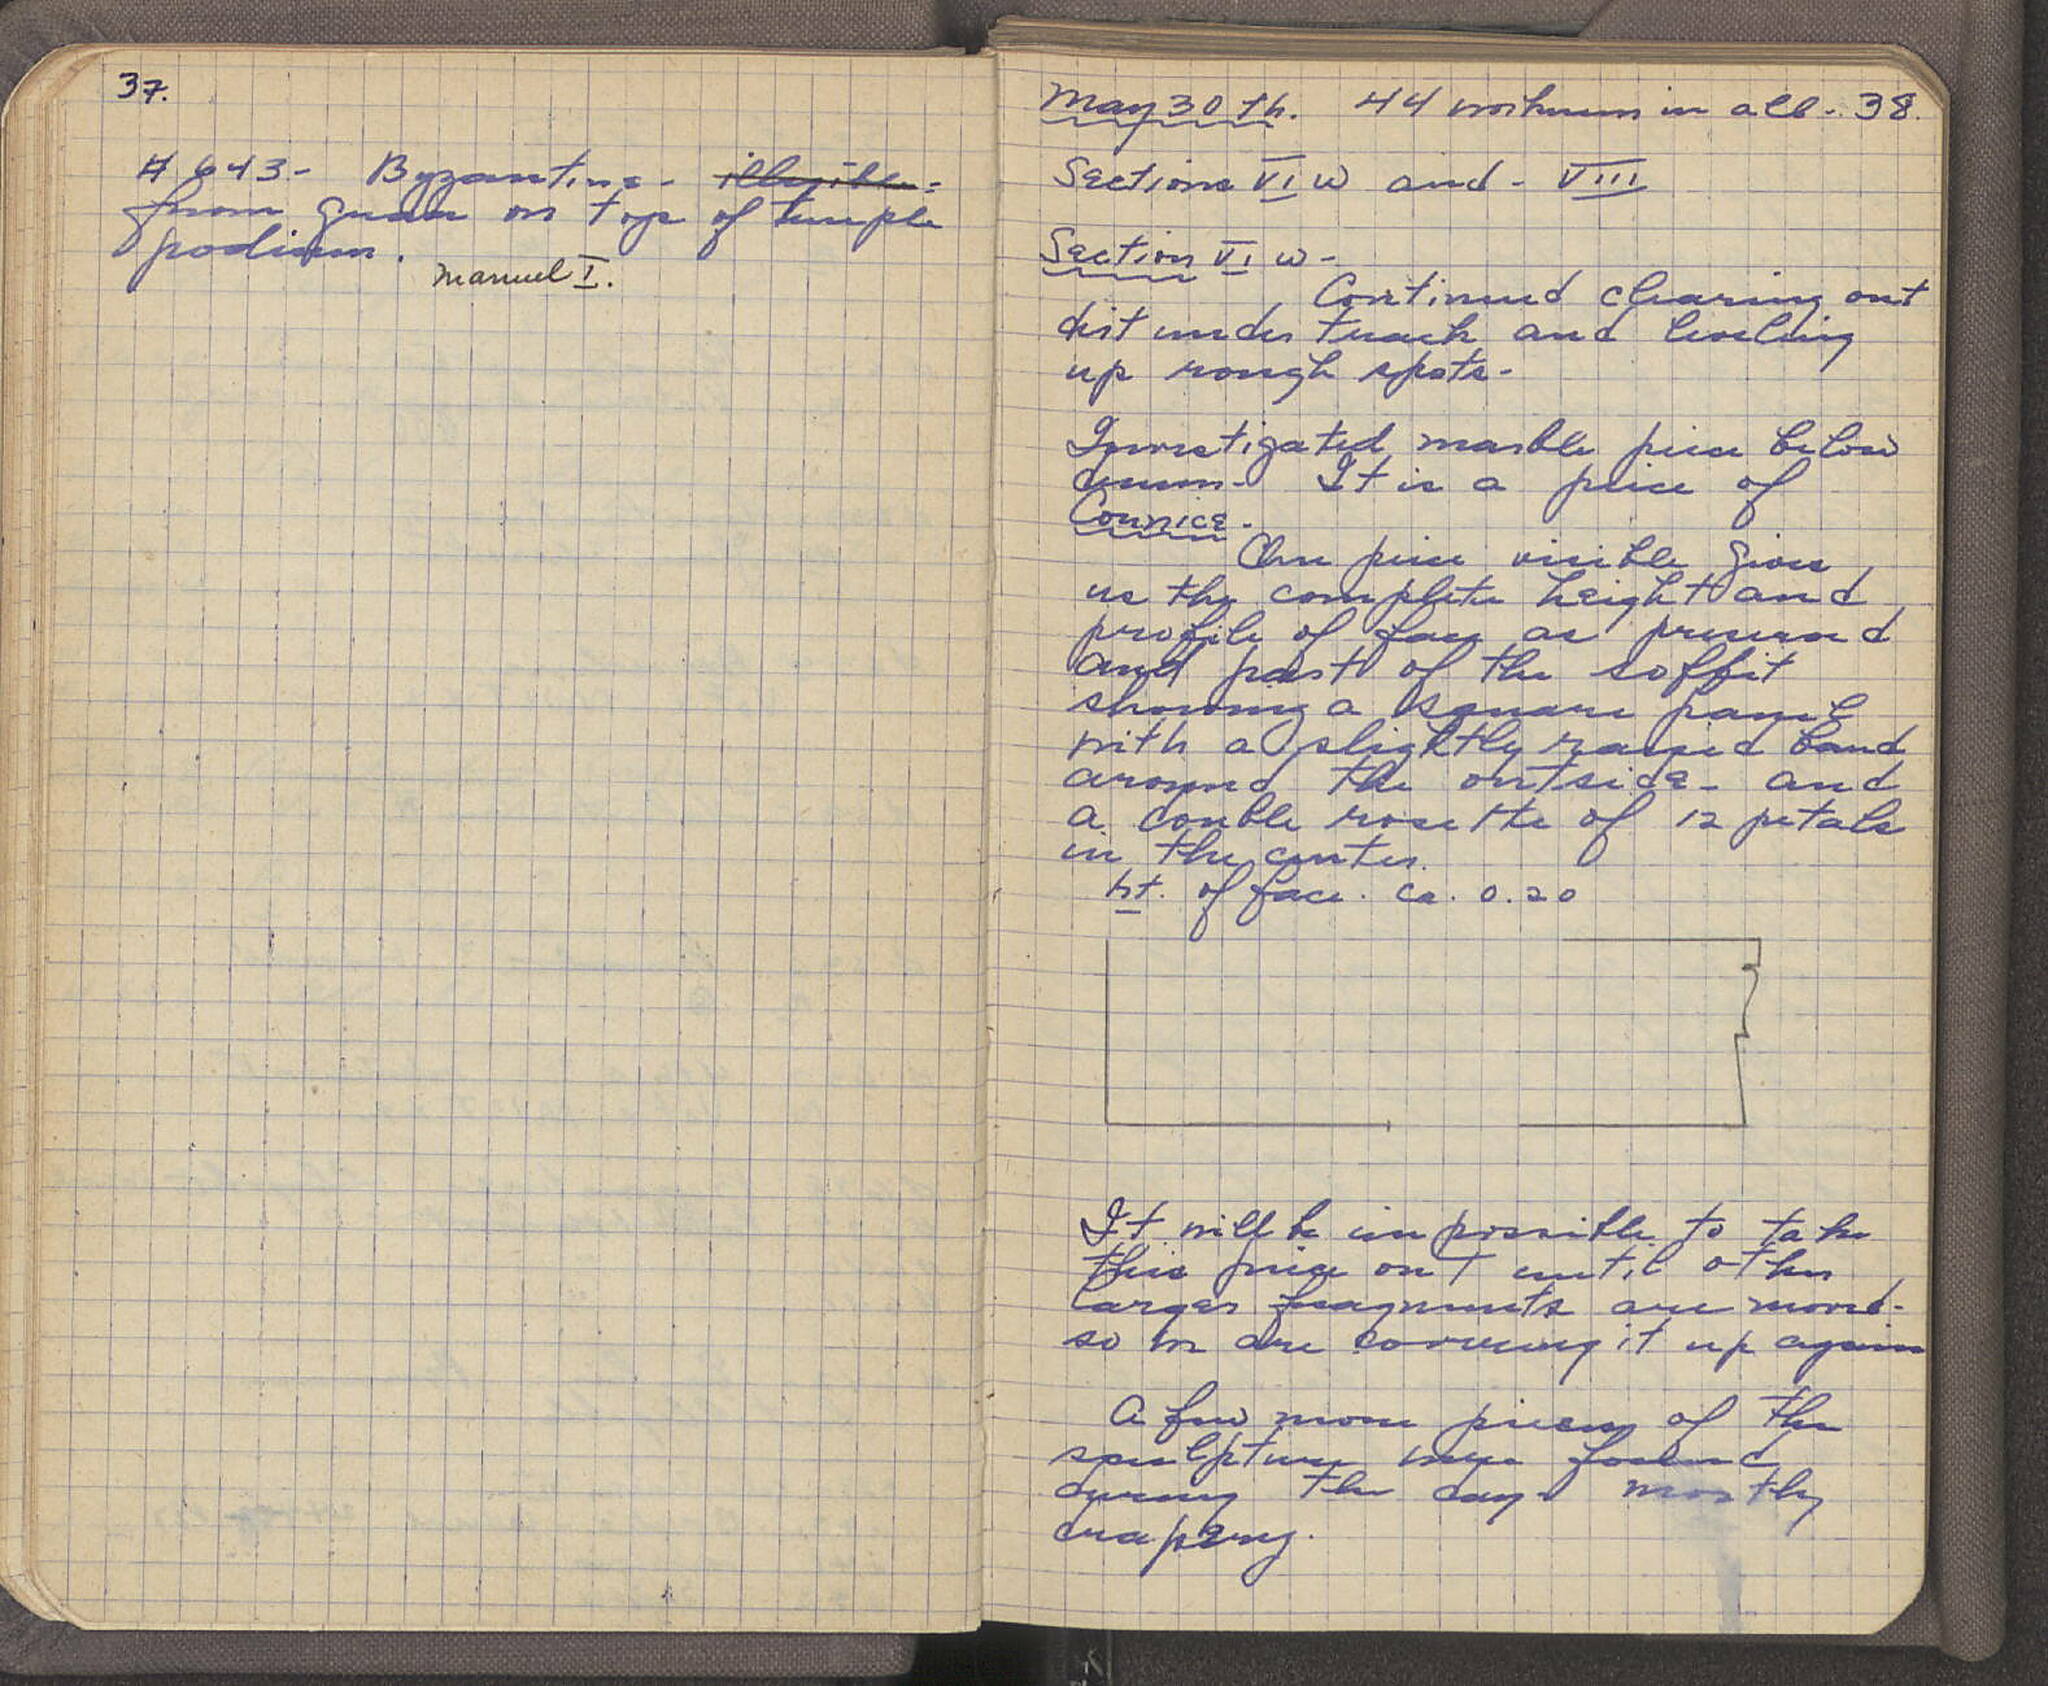 37.
# 643- Byzantine- illegible-
from grave on top of temple
podium.
Manuel I.
May 30th. 44 workmen in all - 38.
Sections VI W and - VIII
Section VI W -
Continued clearing out
dirt under track and leveling
up rough spots-
Investigated marble piece below
drum- It is a piece of
Cornice-
One piece visible gives
us the complete height and
profile of face as preserved
and part of the soffit
showing a square panel
with a slightly raised band
around the outside- and
a double rosette of 12 petals
in the center.
ht. of face. ca. 0.20
It will be impossible to take
this piece out until other
larger fragments are moved-
so we are covering it up again
A few more pieces of the
sculpture were found
during the day- mostly
drapery.